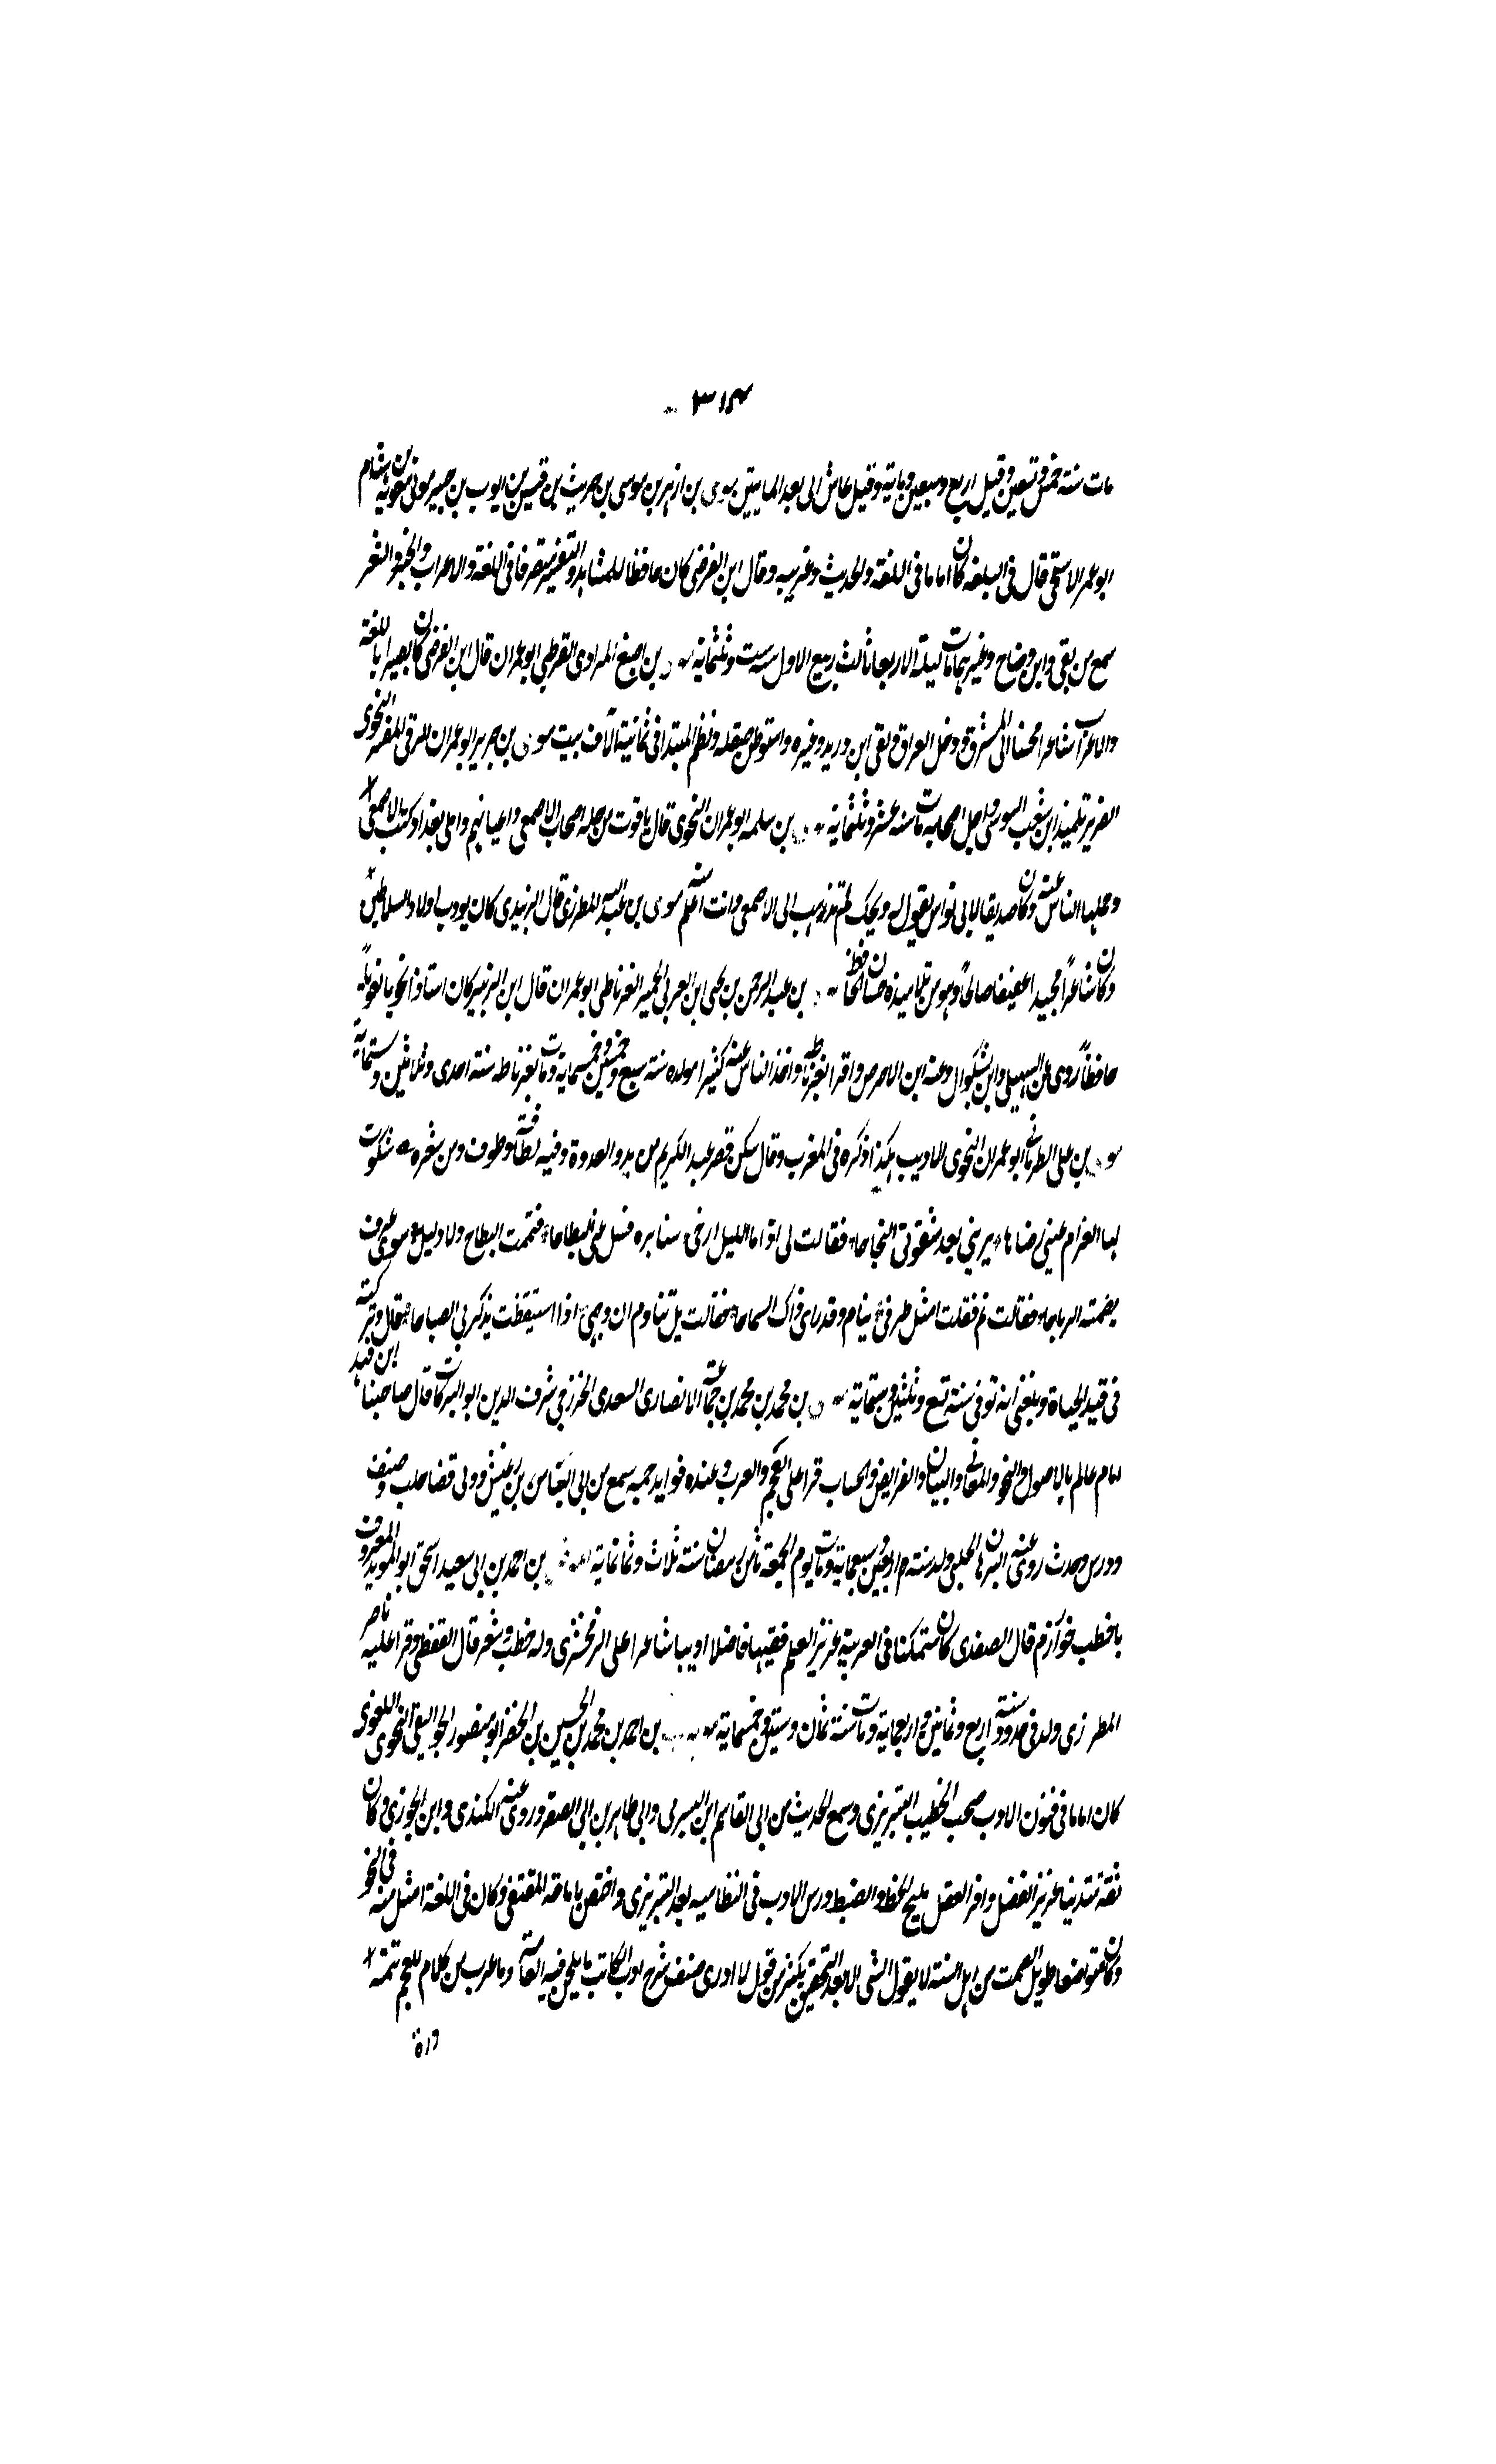 مات سنة خمس وتسعين وقيل اربع وسبعين وماية وقيل عاش الى بعد المايتين موسى بن ازهر بن موسى بن حريث بن قيس بن ايوب بن جبير مولى معوية بن هشام
ابو عمر الاستجي قال في البلغة كان اماما في اللغة والحديث وغريبه وقال ابن الفرضي كان حافظا للمشاهد والتفسير متصرفا في اللغة والاعراب والخبر والشعر
سمع من بقي وابن وضاح وغيرهما مات ليلة الاربعا ثالث ربيع الاول سنة ست وثلثماية بن اصبغ المرادي القرطبي ابو عمران قال ابن الفرضي كان بصيرا باللغة
والاعراب شاعرا محسنا الى المشرق ودخل العراق ولقي ابن دريد وغيره واستوطن صقلية ونظم المبتدا في ثمانية آلاف بيت موسى بن جرير ابو عمران الرقي المقري النحوي
الضرير تلميذ ابن شعيب السوسي واجل اصحابه مات سنة عشر وثلثماية بن سلمة ابو عمران النحوي قال ياقوت من جلة اصحاب الاصمعي واعيانهم واملى ببغداد كتب الاصمعي
وحملها الناس عنه وكان صديقا لابي نواس يقول له ويحك لم تذهب الى الاصمعي وانت اعلم منه موسى بن عبد الله الطرزي قال الزبيدي كان يودب اولاد السلاطين
وكان شاعراً مجيدا عفيفا صالحاً وهو من تلاميذه بن عبد الرحمن بن يحيى ابن العربي الحميري الغرناطي ابو عمران قال ابن الزبير كان استاذا نحويا لغويا
حافظاً روى عن السهيلي وابن بشكوال وعنه ابن الاحوص واقرا بغرناطة واخذ الناس عنه كثيرا مولده سنة سبع وخمسين وخمسماية ومات بغرناطة سنة احدى وثلاثين وستماية
موسى بن علي الطرياني ابو عمران النحوي الاديب هكذا ذكره في المغرب وقال سكن قصر عبد الكريم من بر العدوة وفيه لطافة وظرف ومن شعره شكوت
لها الغرام عسى رضاها يريني بعد شقوتي النجاحا فقالت لي اذا ما الليل ارخى ستايره فسل عن البطاحا فتممت البطاح ولا دليل سوى عرف
يضمنه الرياحا فقالت نم فقلت امثل طرفي ينام وقد راى ذاك السماحا فقالت بل تناوم ان وجهي اذا استيقظت يذكر بي الصباحا قال وتركته
في قيد الحياة وبلغني انه توفي سنة تسع وثلثين وستماية بن محمد بن محمد بن جمعة الانصاري السعدي الخزرجي شرف الدين ابو البركات قال صاحبنا ابن فهد
امام عالم بالاصول والنحو والمعاني والبيان والفرايض والحساب قرا على العجم والعرب وعنده فوايد جمة سمع من ابي العباس بن عيش وولي قضا حلب وصنف
ودرس وحدث روى عنه البرهان الحلبي ولد سنة م اربعين وسبعماية ومات يوم الجمعة ثامن رمضان سنة ثلاث وثمانماية بن احمد بن ابي سعيد اسحق ابو المويد المعروف
باخطب خوارزم قال الصفدي كان متمكنا في العربية غزير العلم فقيها فاضلا اديبا شاعرا على الزمخشري وله خطب وشعر قال القفطي وقرا عليه ناصر
المطرزي ولد في حدود سنة اربع وثمانين واربعماية ومات سنة ثمان وستين وخمسماية بن احمد بن محمد بن الحسين بن الخضر ابو منصور الجواليقي النحوي اللغوي
كان اماما في فنون الادب صحب الخطيب التبريزي وسمع الحديث من ابي القاسم ابن البسري وابي طاهر بن ابي الصقر وروى عنه الكندي وابن الجوزي وكان
ثقة متدينا غزير الفضل وافر العقل مليح الخط والضبط درس الادب في النظامية بعد التبريزي واختص بامامة المقتفي وكان في اللغة امثل منه في النحو
وكان متواضعا طويل الصمت من اهل السنة لا يقول الشي الا بعد التحقيق يكثر من قول لا ادري صنف شرح ادب الكاتب ما يلحن فيه العامة وما عرب من كلام العجم تتمة
درة